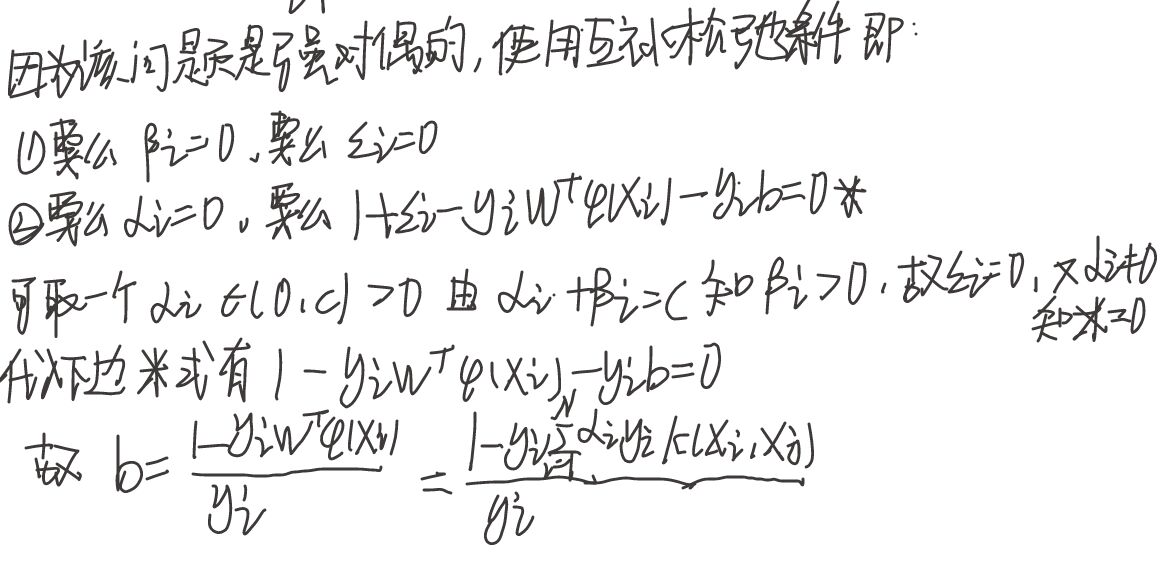 因为该问题是强对偶的,使用互补松弛条件即:
①要么 βi=0、要么 ξi=0
②要么 αi=0、要么 1+ξi-yiWᵀφ(Xi)-yib=0 *
可取一个 αi∈(0,c)>0 由 αi+βi=C 知 βi>0、故ξi=0,又αi≠0
知*=0
代入下边*式有 1-yiwᵀφ(xi)-yib=0
故 b=(1-yiwᵀφ(Xi))/yi = (1-yi∑_{i=1}^{N}αiyiK(Xi,Xj))/yi